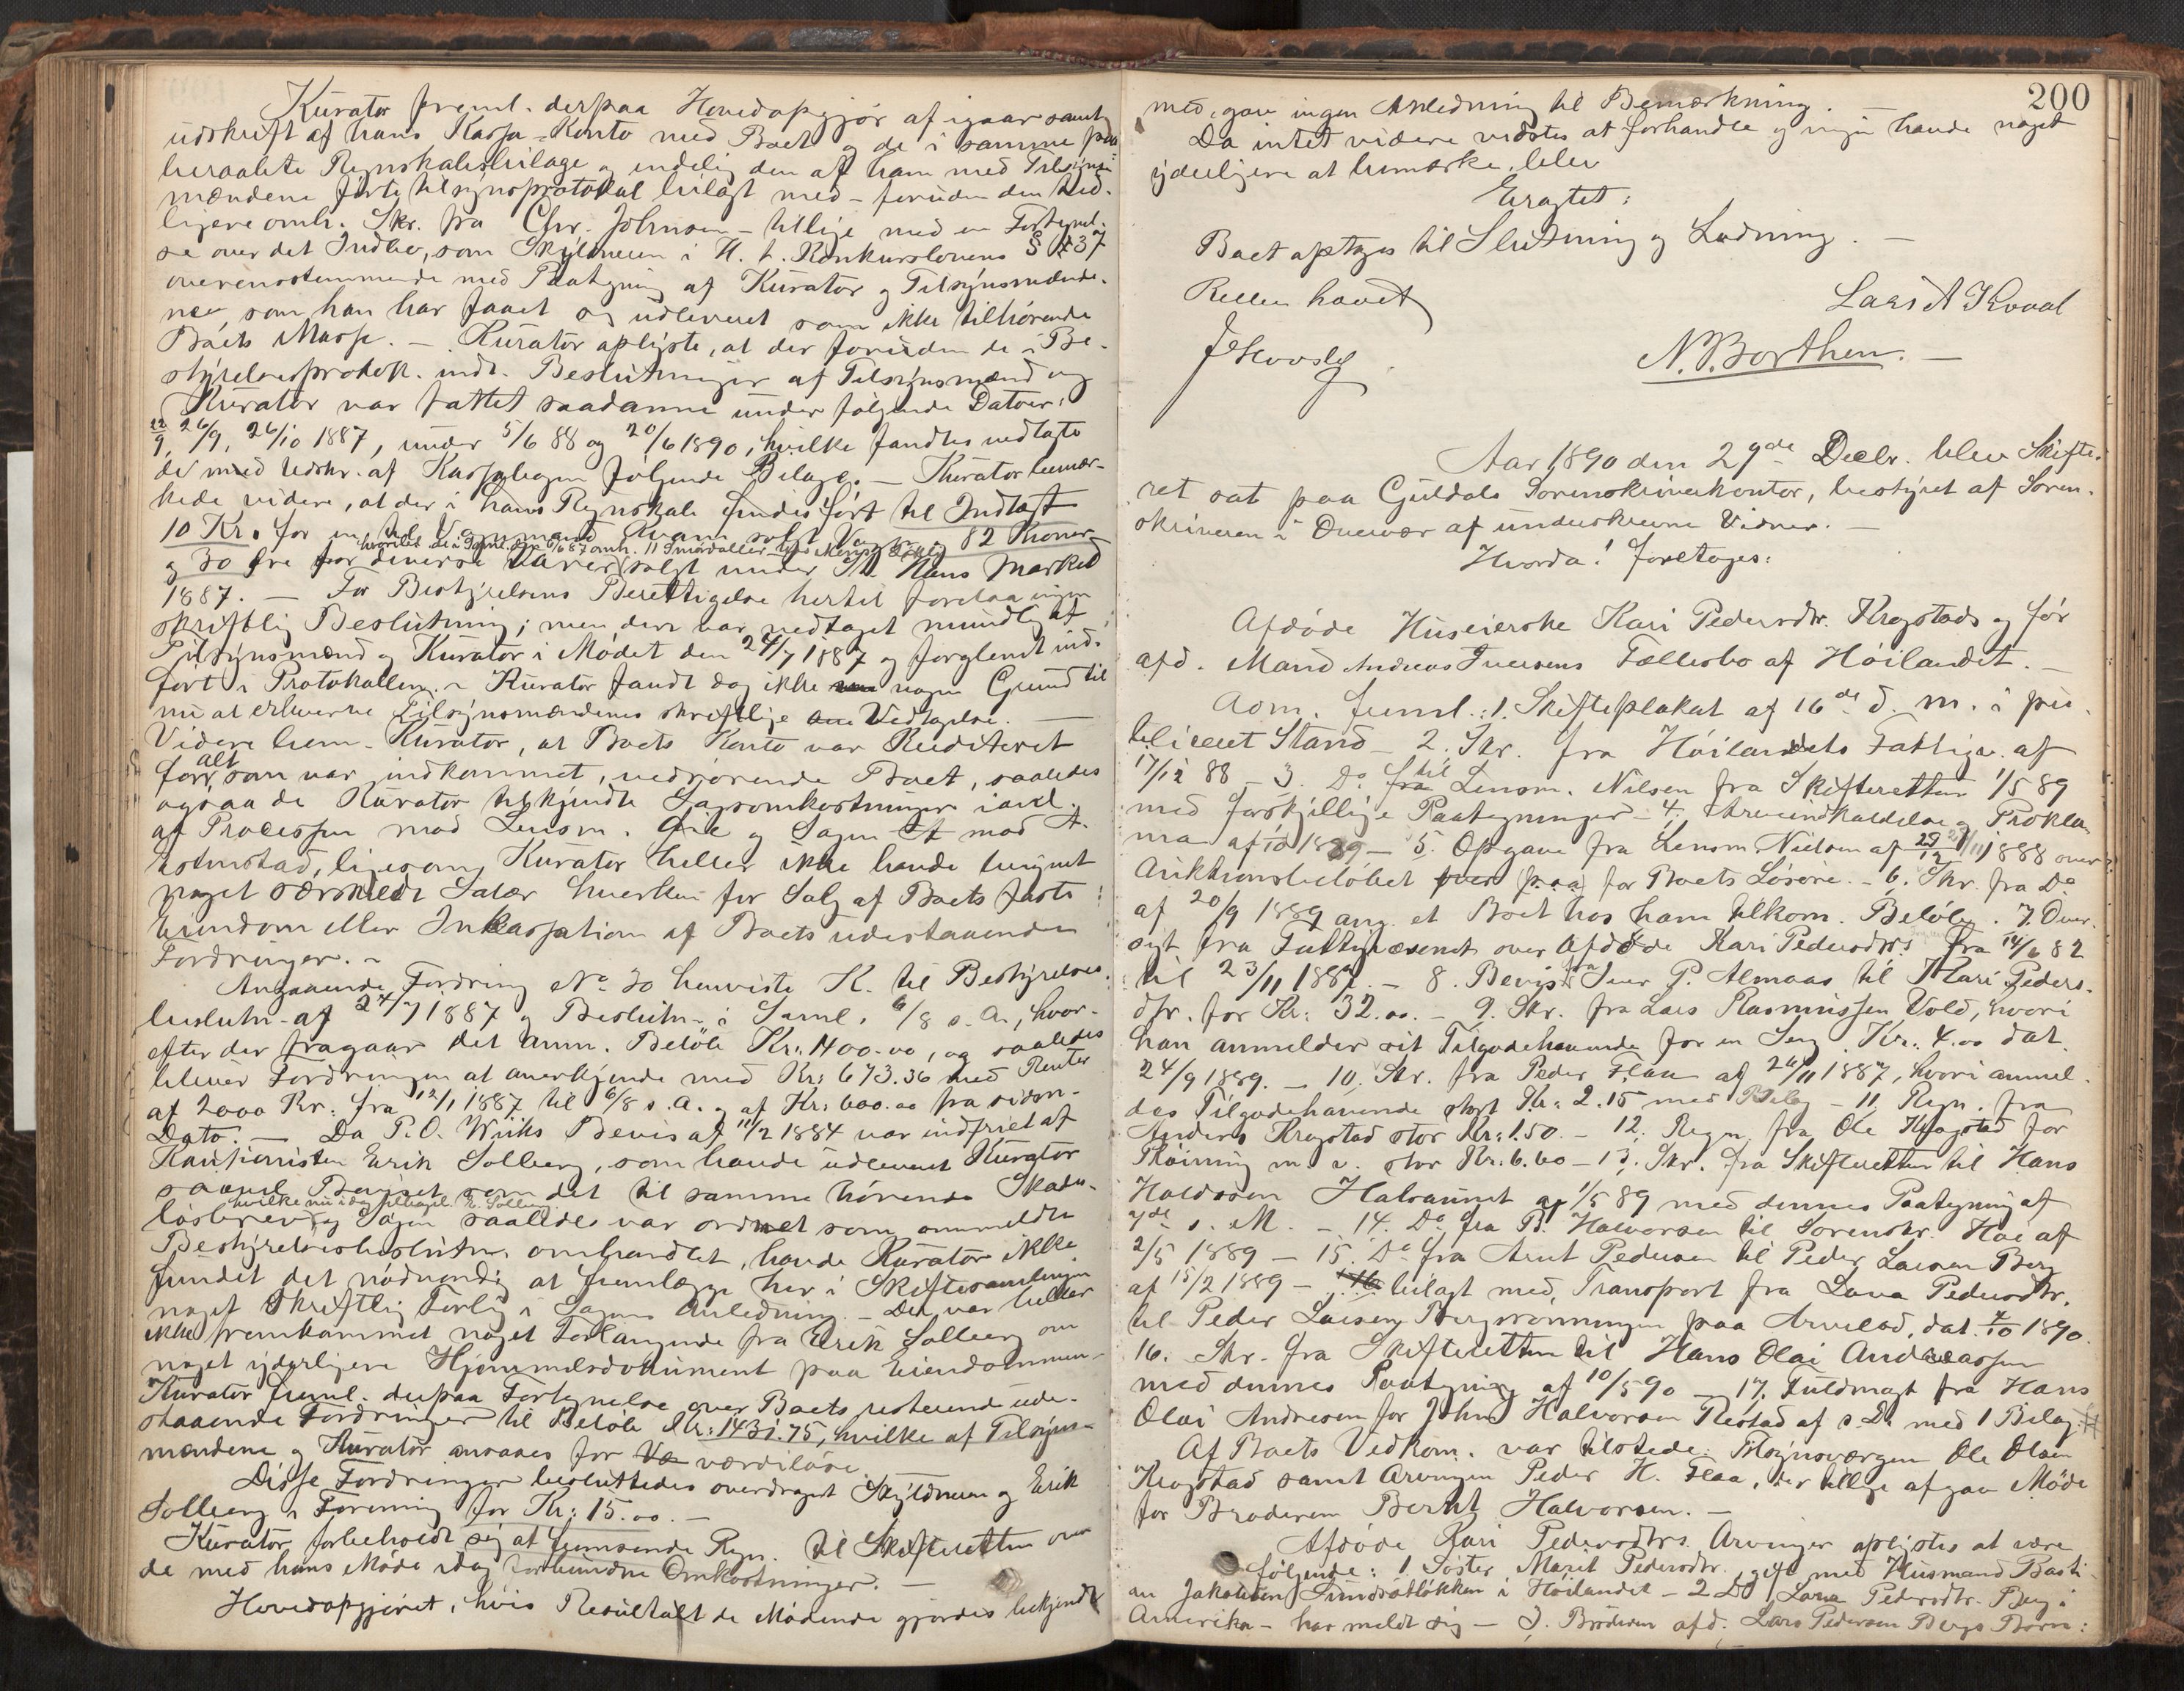 Kurator freml. derpaa Hovedopgjør af igaar samt
udskrift af hans Kassa-Konto med Boet og de i samme paa
beraabte Regnskabsbilage og endelig den af ham med Tilsyns-
mændene førte tilsynsprotokol bilagt med - foruden den tid-
ligere omh. Skr. fra Chr. Johnsen - tillige med en Fortegnel-
se over det Indbo, som Skyldneren i H. t. Konkurslovens § 37
overensstemmende med Paategning af Kurator og Tilsynsmænde-
ne, som han har faaet sig udleveret som ikke tilhørende
Boets Masse. - Kurator oplyste, at der foruden de i Be-
styrelsesprotok. indt. Beslutninger af Tilsynsmænd og
Kurator var fattet saadanne under følgende Datoer:
22/9, 26/9, 26/10 1887, under 5/6 88 og 20/6 1890, hvilke fandtes vedtagte
de med Udskr. af Kassabogen følgende Bilage. - Kurator bemær-
kede videre, at der i hans Regnskab findes ført til Indtægt
10 Kr. for en Vognmand Kvam solgt Vogn og 82 Kroner
hvoribl. de i Saml. den 6/8 87 omh. 11 Smørdaller
og 30 Øre for diverse Varer solgt under St. Hans Marked
1887. - For Bestyrelsens Berettigelse hertil forelaa ingen
skriftlig Beslutning; men den var vedtaget mundlig af
Tilsynsmænd og Kurator i Mødet den 24/7 1887 og forglemt ind-
ført i Protokollen. - Kurator fandt dog ikke nogen Grund til
nu at erhverve Tilsynsmændenes skriftlige Vedtagelse. -
Videre bem. Kurator, at Boets Konto var krediteret
alt
for, som var indkommet, vedrørende Boet, saaledes
ogsaa de Kurator tilkjendte Sagsomkostninger i anl.
af Processen mod Lensm. Øie og Sagen mod A.
Holmstad, ligesom Kurator heller ikke havde beregnet
noget særskildt Salær hverken for Salg af Boets faste
Eiendom eller Inkassation af Boets udestaaende
Fordringer. -
Angaaende Fordring No 30 henviste K. til Bestyrelses-
beslutn. af 24/7 1887 og Beslutn. i Saml. 6/8 s. A., hvor-
efter der fragaar det anm. Beløb Kr. 1400.00, og saaledes
bliver Fordringen at anerkjende med Kr: 673.36 med Renter
af 2000 Kr. fra 12/1 1887 til 6/8 s. A. og af Kr: 600.00 fra sidstn.
Dato. - Da P. O. Wiiks Bevis af 11/2 1884 var indfriet af
Kautionisten Erik Solberg, som havde udleveret Kurator
saavel Beviset som det til samme hørende Skades-
hvilke nu i dag tilbagel. E. Solberg
løsbrev, og Sagen saaledes var ordnet som ommeldte
Bestyrelsesbeslutn. omhandlet, havde Kurator ikke
fundet det nødvendig at fremlægge her i Skiftesamlingen
noget Skriftlig Forlig i Sagens Anledning. - Der var heller
ikke fremkommet noget Forlangende fra Erik Solberg om
noget yderligere Hjemmelsdokument paa Eiendommen. -
Kurator freml. derpaa Fortegnelse over Boets resterende ude-
staaende Fordringer til Beløb Kr: 1431.75, hvilke af Tilsyns-
mændene og Kurator ansaaes for værdiløse.
Disse Fordringer besluttedes overdraget Skyldneren og Erik
Solberg i Forening for Kr: 15.00. -
Kurator forbeholdt sig at fremsende Regn. til Skifteretten over
de med hans Møde idag forbundne Omkostninger. -
Hovedopgjøret, hvis Resultat de Mødende gjordes bekjendt
200
med, gav ingen Anledning til Bemærkning. -
Da intet videre vidstes at forhandle og ingen havde noget
yderligere at bemærke, blev
Eragtet:
Boet optages til Slutning og Lodning. -
Retten hævet
Lars A Kvaal
N. P. Borthen. -
Aar 1890 den 29de Decbr. blev Skifte-
ret sat paa Guldals Sorenskriverkontor, bestyret af Soren-
skriveren i Overvær af underskrevne Vidner. -
Hvorda! foretages:
Afdøde Huseierske Kari Pedersdtr. Krogstads og før
afd. Mand Andreas Iversens Fællesbo af Høilandet. -
Adm. freml.: 1. Skifteplakat af 16de d. M. i pu-
bliceret Stand - 2. Skr. fra Høilandets Fattigv. af
17/12 88 - 3. Do til Lensm. Nilsen fra Skifteretten 1/5 89
med forskjellige Paategninger - 4. Arveindkaldelse og Prokla-
ma af 1889 - 5. Opgave fra Lensm. Nielsen af 1888 over
Auktionsbeløbet for Boets Løsøre. - 6. Skr. fra Do
af 20/9 1889 ang. et Boet hos ham tilkom. Beløb. 7. Over-
sigt fra Fattigvæsenet over Afdøde Kari Pedersdtrs fra 14/6 82
til 23/11 1887. - 8. Bevis fra Iver P. Almaas til Kari Peders-
dtr. for Kr: 32.00. - 9. Skr. fra Lars Rasmussen Vold, hvori
han anmelder sit Tilgodehavende for en Seng Kr. 4.00 dat.
24/9 1889. - 10. Skr. fra Peder Flaa af 26/11 1887, hvori anmel-
des Tilgodehavende stort Kr: 2.15 med Bilag - 11. Regn. fra
Anders Krogstad stor Kr: 1.50. - 12. Regn. fra Ole Krogstad for
Thoining m. v. stor Kr: 6.60 - 13. Skr. fra Skifteretten til Hans
Haldosen Halvaunet af 1/5 89 med dennes Paategning af
7de s. M. - 14. Do fra B. Halvorsen til Sorenskr. Hoë af
2/5 1889 - 15. Do fra Arnt Pedersen til Peder Larsen Berg
af 15/2 1889 - bilagt med Transport fra Lava Pedersdtr.
til Peder Larsen Bergsrønningen paa Arvelod, dat. 7/10 1890.
16. Skr. fra Skifteretten til Hans Olai Andreassen
med dennes Paategning af 10/5 90 - 17. Fuldmagt fra Hans
Olai Andresen for John Halvorsen Restad af s. D. med 1 Bilag #
Af Boets Vedkom. var tilstede: Tilsynsværgen Ole Olsen
Krogstad samt Arvingen Peder H. Flaa, der tillige afgav Møde
for Broderen Bernt Halvorsen. -
Afdøde Kari Pedersdtrs. Arvinger oplystes at være
følgende: 1. Søster Marit Pedersdtr. gift med Husmand Basti-
an Jakobsen Sundsetløkken i Høilandet - 2. Do Lava Pedersdtr. Berg i
Amerika - har meldt sig - 3. Broderen afd. Lars Pedersen Bergs Børn: